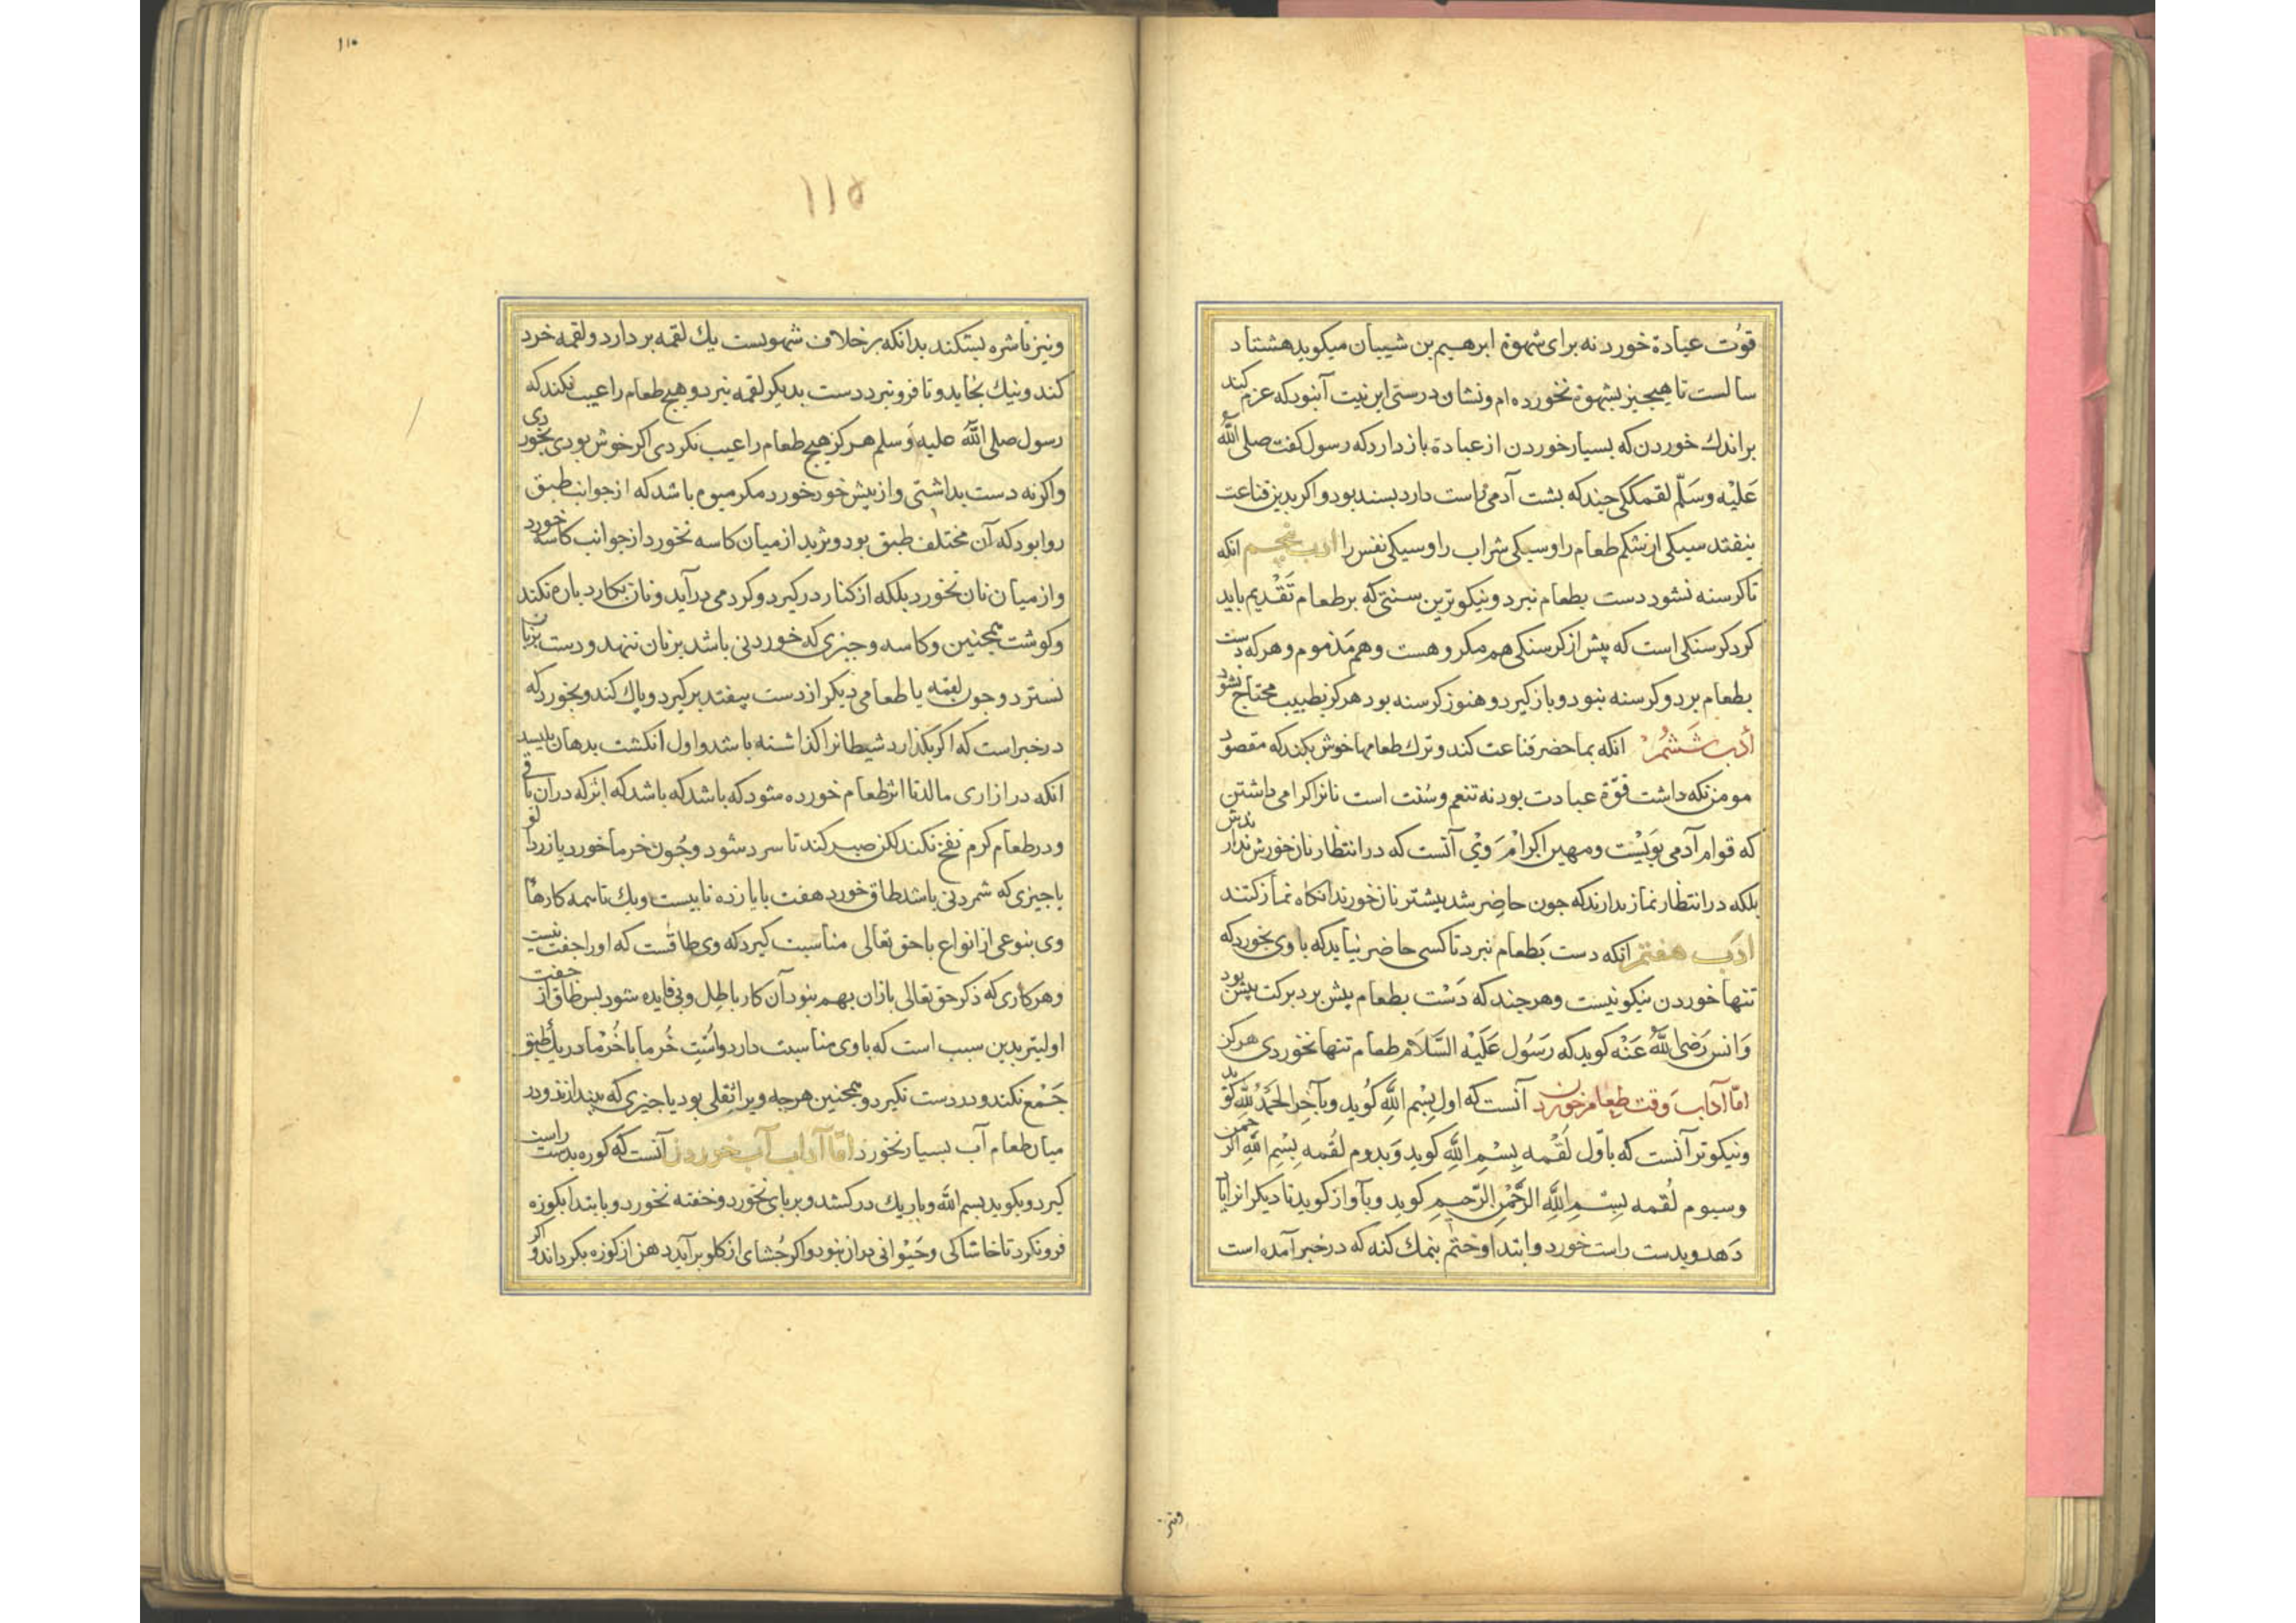 قوّت عبادة خورد نه برای شهوة ابرهیم بن شیبان میکوید هشتاد
سالست تا هیچیز بشهوة نخورده ام و نشان درستی این نیت آنبود که عزم کند
بر اندك خوردن که بسیار خوردن از عبادة باز دارد که رسول کفت صلی اللّٰه
عَلیْه وسَلّم لقمککی جند که بشت آدمی راست دارد بسند بود و اکر بدین قناعت
نیفتد سیکی از شکم طعام را و سیکی شراب را و سیکی نفس را ادب پنجم انکه
تا کرسنه نشود دست بطعام نبرد و نیکوترین سنتی که بر طعام تَقْدیم باید
کرد کرسنکی است که پیش از کرسنکی هم مکروهست و هم مَذموم و هر که دست
بطعام برد و کرسنه نبود و باز کیرد و هنوز کرسنه بود هرکز بطبیب محتاج نشود
أدب شَشُمْ انکه بما حضر قناعت کند و ترك طعامها خوش بکند که مقصود
مومن نکه داشت قوّة عبادت بود نه تنعم و سُنت است نانرا کرامی داشتن
که قوام آدمی بَویْست و مهین اکرامْ وَیْ آنست که در انتظار نان خورش ندارندش
بلکه در انتظار نماز ندارند که جون حاضِر شد بیشتر نان خورند انکاه نماز کنند
ادَب هفتم انکه دست بَطعام نبرد تا کسی حاضر نیاید که با وی بخورد که
تنها خوردن نیکو نیست و هرجند که دَسْت بطعام پیش برد برکت پیش بود
وَ انس رَضیَ اللّٰهُ عَنْه کوید که رَسُول عَلَیْه السَّلاَم طعام تنها نخوردی هرکز
امّا آداب وَقت طعام خوردن آنست که اول بِسْم اللّٰهِ کُوید و بآخِر الحَمْدُ لِلّٰهِ کوید
و نیکوتر آنست که باَوّل لُقْمه بِسْمِ اللّٰهِ کوید وَ بدوم لُقمه بِسْمِ اللّٰهِ الرحمن
و سیوم لُقمه بِسْمِ اللّٰهِ الرَّحْمٰنِ الرَّحیم کوید و بآواز کوید تا دیکرانرا یاد
دَهد و بدست راست خورد و ابتدا و ختم بنمك کند که در خبر آمده است
ونیز
۱۱۰
۱۱۵
و نیز تا شره بشکند بدانکه بر خلاف شهوتست یك لقمه بر دارد و لقمه خرد
کند و نیك بخاید و تا فرو نبرد دست بدیکر لقمه نبرد و هیج طعام را عیب نکند که
رسول صلی اللّٰه علیه وَسلم هرکز هیج طعام را عیب نکردی اکر خوش بودی بخوردی
و اکر نه دست بداشتی و از پیش خود خورد مکر میوه باشد که از جوانب طبق
روا بود که آن مختلف طبق بود و ثرید از میان کاسه نخورد از جوانب کاسه خورد
و از میان نان نخورد بلکه از کنار در کیرد و کرد می در آید و نان بکارد باره نکند
و کوشت همجنین و کاسه و جیزی که خوردنی باشد بر نان ننهد و دست بر نان
نسترد و جون لقمه یا طعامی دیکر از دست بیفتد بر کیرد و پاك کند و بخورد که
در خبر است که اکر بکذارد شیطانرا کذاشته باشد و اول انکشت بدهان بلیسد
انکه در ازاری مالد تا اثر طعام خورده شود که باشد که باشد که اثر که در آن باقی
و در طعام کرم نفخ نکند لکن صبر کند تا سرد شود و جُون خرما خورد یا زردالو
یا جیزی که شمردنی باشد طاق خورد هفت یا یازده تا بیست و یك تا همه کارها
وی بنوعی از انواع با حق تعالی مناسبت کیرد که وی طاقست که او را جفت نیست
و هر کاری که ذکر حق تعالی بازان بهم نبود آن کار باطل و بی فایده شود بس طاق از جفت
اولیتر بدین سبب است که با وی مناسبت دارد و اُستِ خُرما با خُرْما در یك طبق
جَمْع نکند و در دست نکیرد و همجنین هرجه ویرا ثقلی بود یا جیزی که بیندازند و در
میان طعام آب بسیار نخورد امّا آداب آب خوردن آنست که کوزه بدست راست
کیرد و بکوید بسم اللّٰه و باریك در کشد و بر پای نخورد و خفته نخورد و بابتدا بکوزه
فرو نکرد تا خاشاکی و حَیْوانی در ان نبود و اکر جُشای از کلو بر آید دهن از کوزه بکرداند و اکر